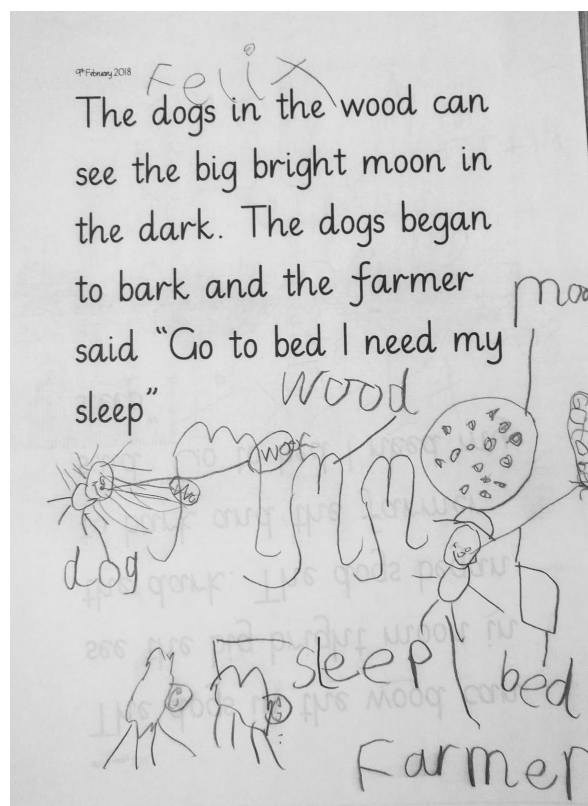 9th February 2018
Felix
The dogs in the wood can
see the big bright moon in
the dark. The dogs began
to bark and the farmer
said “Go to bed I need my
sleep”
moo
wood
woof
dog
sleep
bed
Farmer